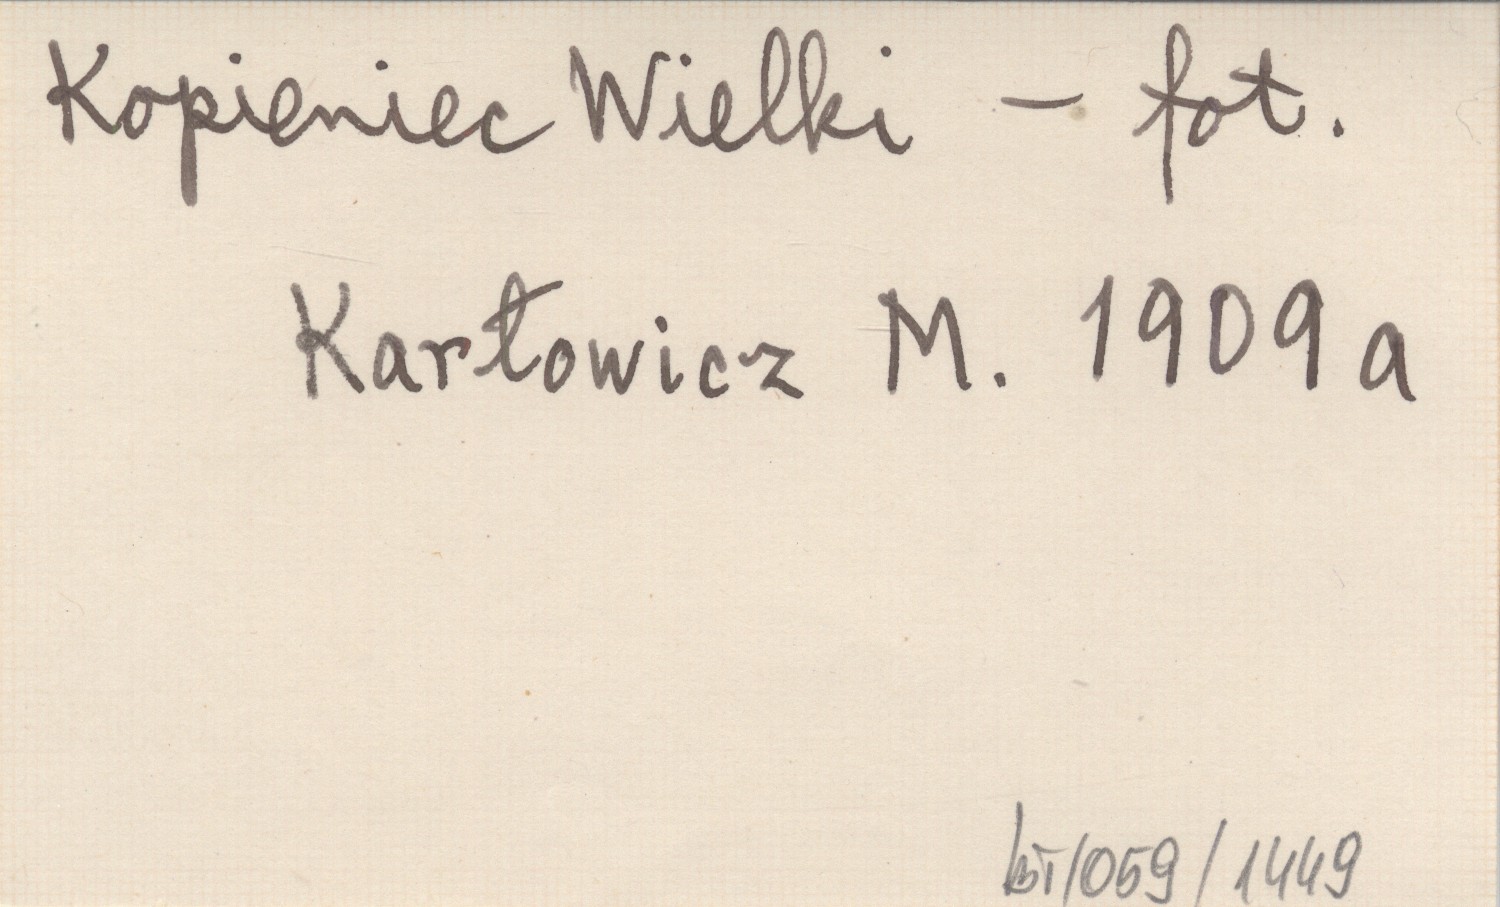 Kopieniec Wielki – fot.
Karłowicz M. 1909a
/059/1449